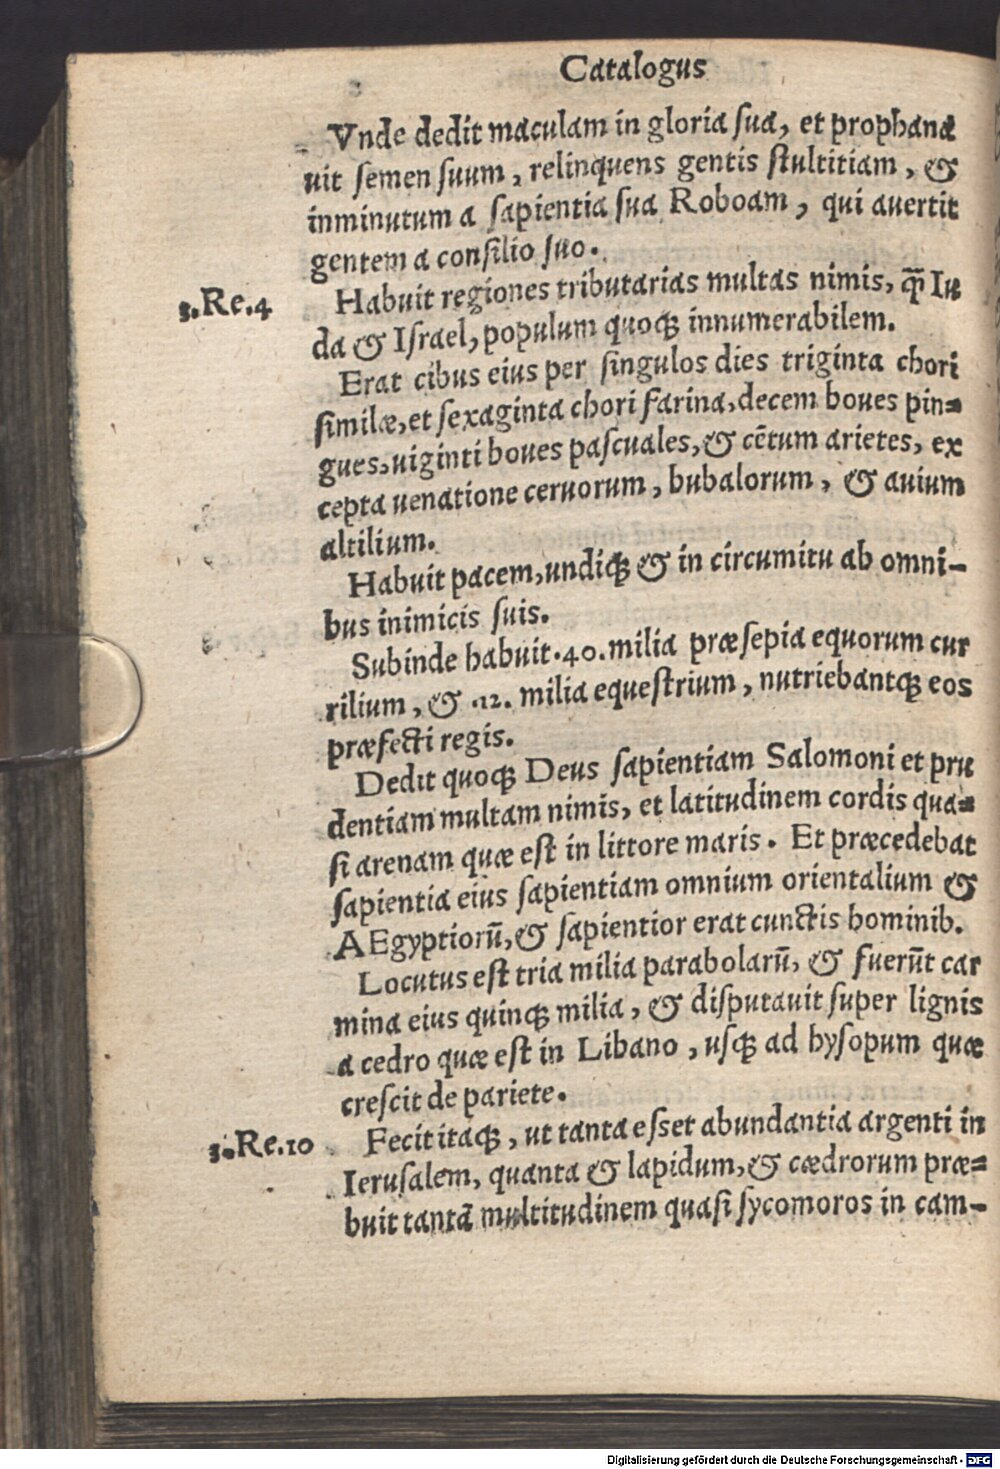 Catalogus
Vnde dedit maculam in gloria ſua, et prophana
uit ſemen ſuum, relinquens gentis ſtultitiam, &
inminutum a ſapientia ſua Roboam, qui auertit
gentem a conſilio ſuo.
3.Re.4 Habuit regiones tributarias multas nimis, qꝫ̄ Iu
da & Iſrael, populum quoqꝫ innumerabilem.
Erat cibus eius per ſingulos dies triginta chori
ſimilæ, et ſexaginta chori farina, decem boues pin=
gues, uiginti boues paſcuales, & cētum arietes, ex
cepta uenatione ceruorum, bubalorum, & auium
altilium.
Habuit pacem, undiqꝫ & in circumitu ab omni-
bus inimicis ſuis.
Subinde habuit .40. milia præſepia equorum cur
rilium, & .12. milia equeſtrium, nutriebantqꝫ eos
præfecti regis.
Dedit quoqꝫ Deus ſapientiam Salomoni et pru
dentiam multam nimis, et latitudinem cordis qua=
ſi arenam quæ eſt in littore maris. Et præcedebat
ſapientia eius ſapientiam omnium orientalium &
AEgyptiorū, & ſapientior erat cunctis hominib.
Locutus eſt tria milia parabolarū, & fuerūt car
mina eius quinqꝫ milia, & diſputauit ſuper lignis
a cedro quæ eſt in Libano, uſqꝫ ad hyſopum quæ
creſcit de pariete.
3.Re.10 Fecit itaqꝫ, ut tanta eſset abundantia argenti in
Ieruſalem, quanta & lapidum, & cædrorum præ=
buit tantā multitudinem quaſi ſycomoros in cam-
Digitalisierung gefördert durch die Deutsche Forschungsgemeinschaft - DFG